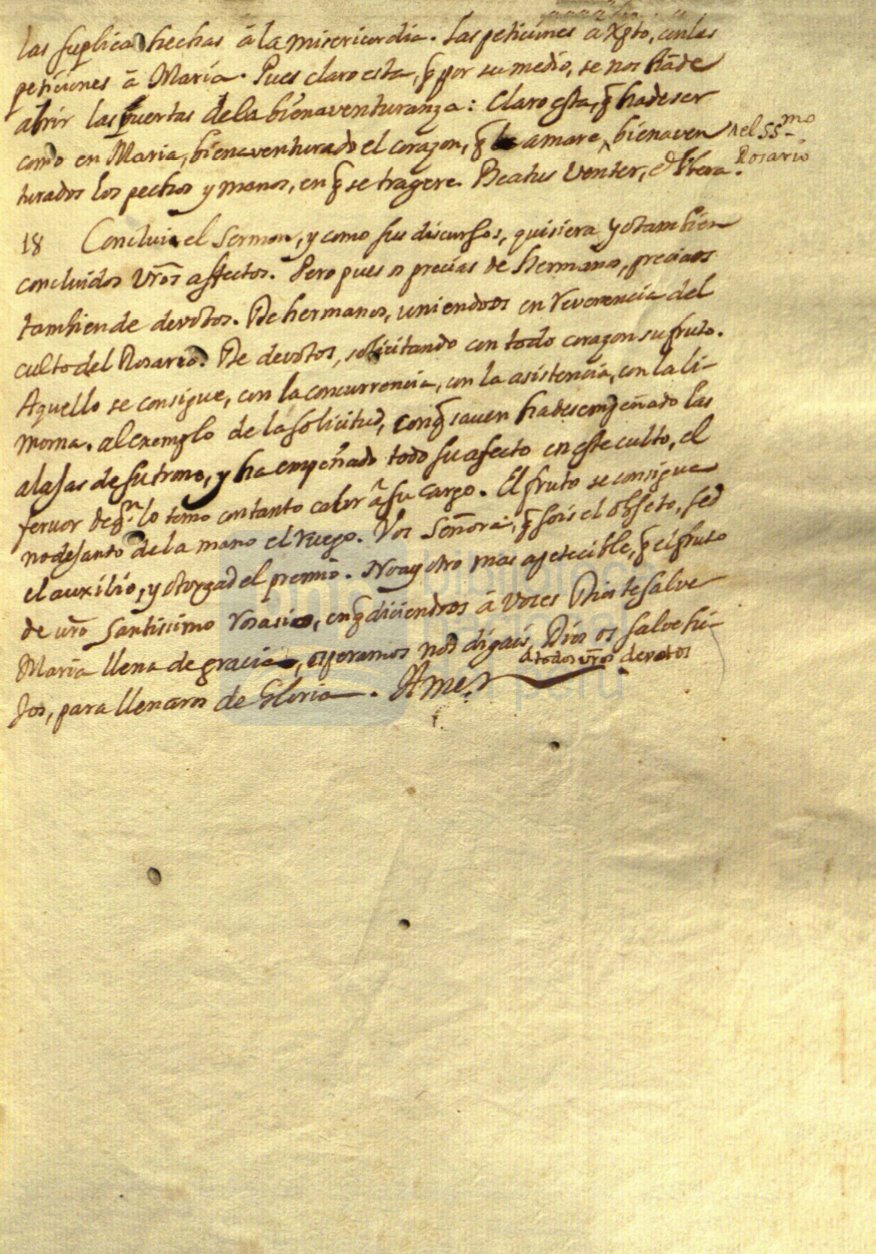 las suplicas hechas â la misericordia. Las peticiones a Xpto, con las
peticiones â Maria. Pues claro esta, q̃ por su medio, se nos hâ de
abrir las puertas de la bienaventuranza: Claro esta, q̃ ha de ser
como en Maria, bienaventurado el corazon, q̃ amare ^ bienaven
^ el SS.mo
Rosario
turados los pechos y manos, en q̃ se tragere. Beatus Venter, &
18 Conclui el Sermon, y como sus discursos, quisiera yo tambien
concluidos vr̃os affectos. Pero pues os preciais de Hermanos, preciaos
tambien de devotos. De hermanos, uniendoos en reverencia del
culto del Rosario. De devotos, solicitando con todo corazon su fruto.
Aquello se consigue, con la concurrencia, con la asistencia, con la li-
mosna. al exemplo de la solicitud, con q̃ saven ha desempeñado las
alajas de su trono, y ha empeñado todo su afecto en este culto, el
fervor de q.n lo tomo con tanto calor â su cargo. El fruto se consigue
no dejando de la mano el ruego. Vos Señora, q̃ sois el objeto, sed
el auxilio, y otorgad el premio. No ay otro mas apetecible, q̃ el fruto
de vr̃o Santissimo rosario, en q̃ diciendoos â voces Dios te salve
Maria llena de gracia, esperamos nos digais, Dios os salve hi-
a todos vr̃os devotos
jos, para llenaros de Gloria. Amen
biblioteca
nacional
del perú